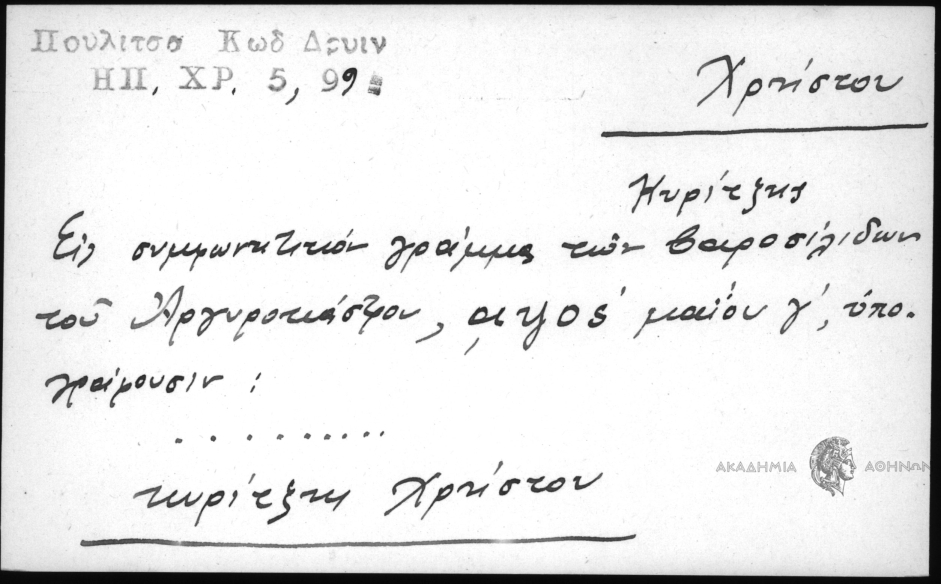 Πουλιτσα Κωδ Δρυιν
ΗΠ. ΧΡ. 5, 99
Χρήστου
Κυρίτζης
Εἰς συμφωνητικόν γράμμα τῶν βαφοσίλιδων
τοῦ Ἀργυροκάστρου, ͵αψος΄ μαΐου γ΄, ὑπο-
γράφουσιν :
. . . . . . . . . .
κυρίτζης Χρήστου
ΑΚΑΔΗΜΙΑ ΑΘΗΝΩΝ